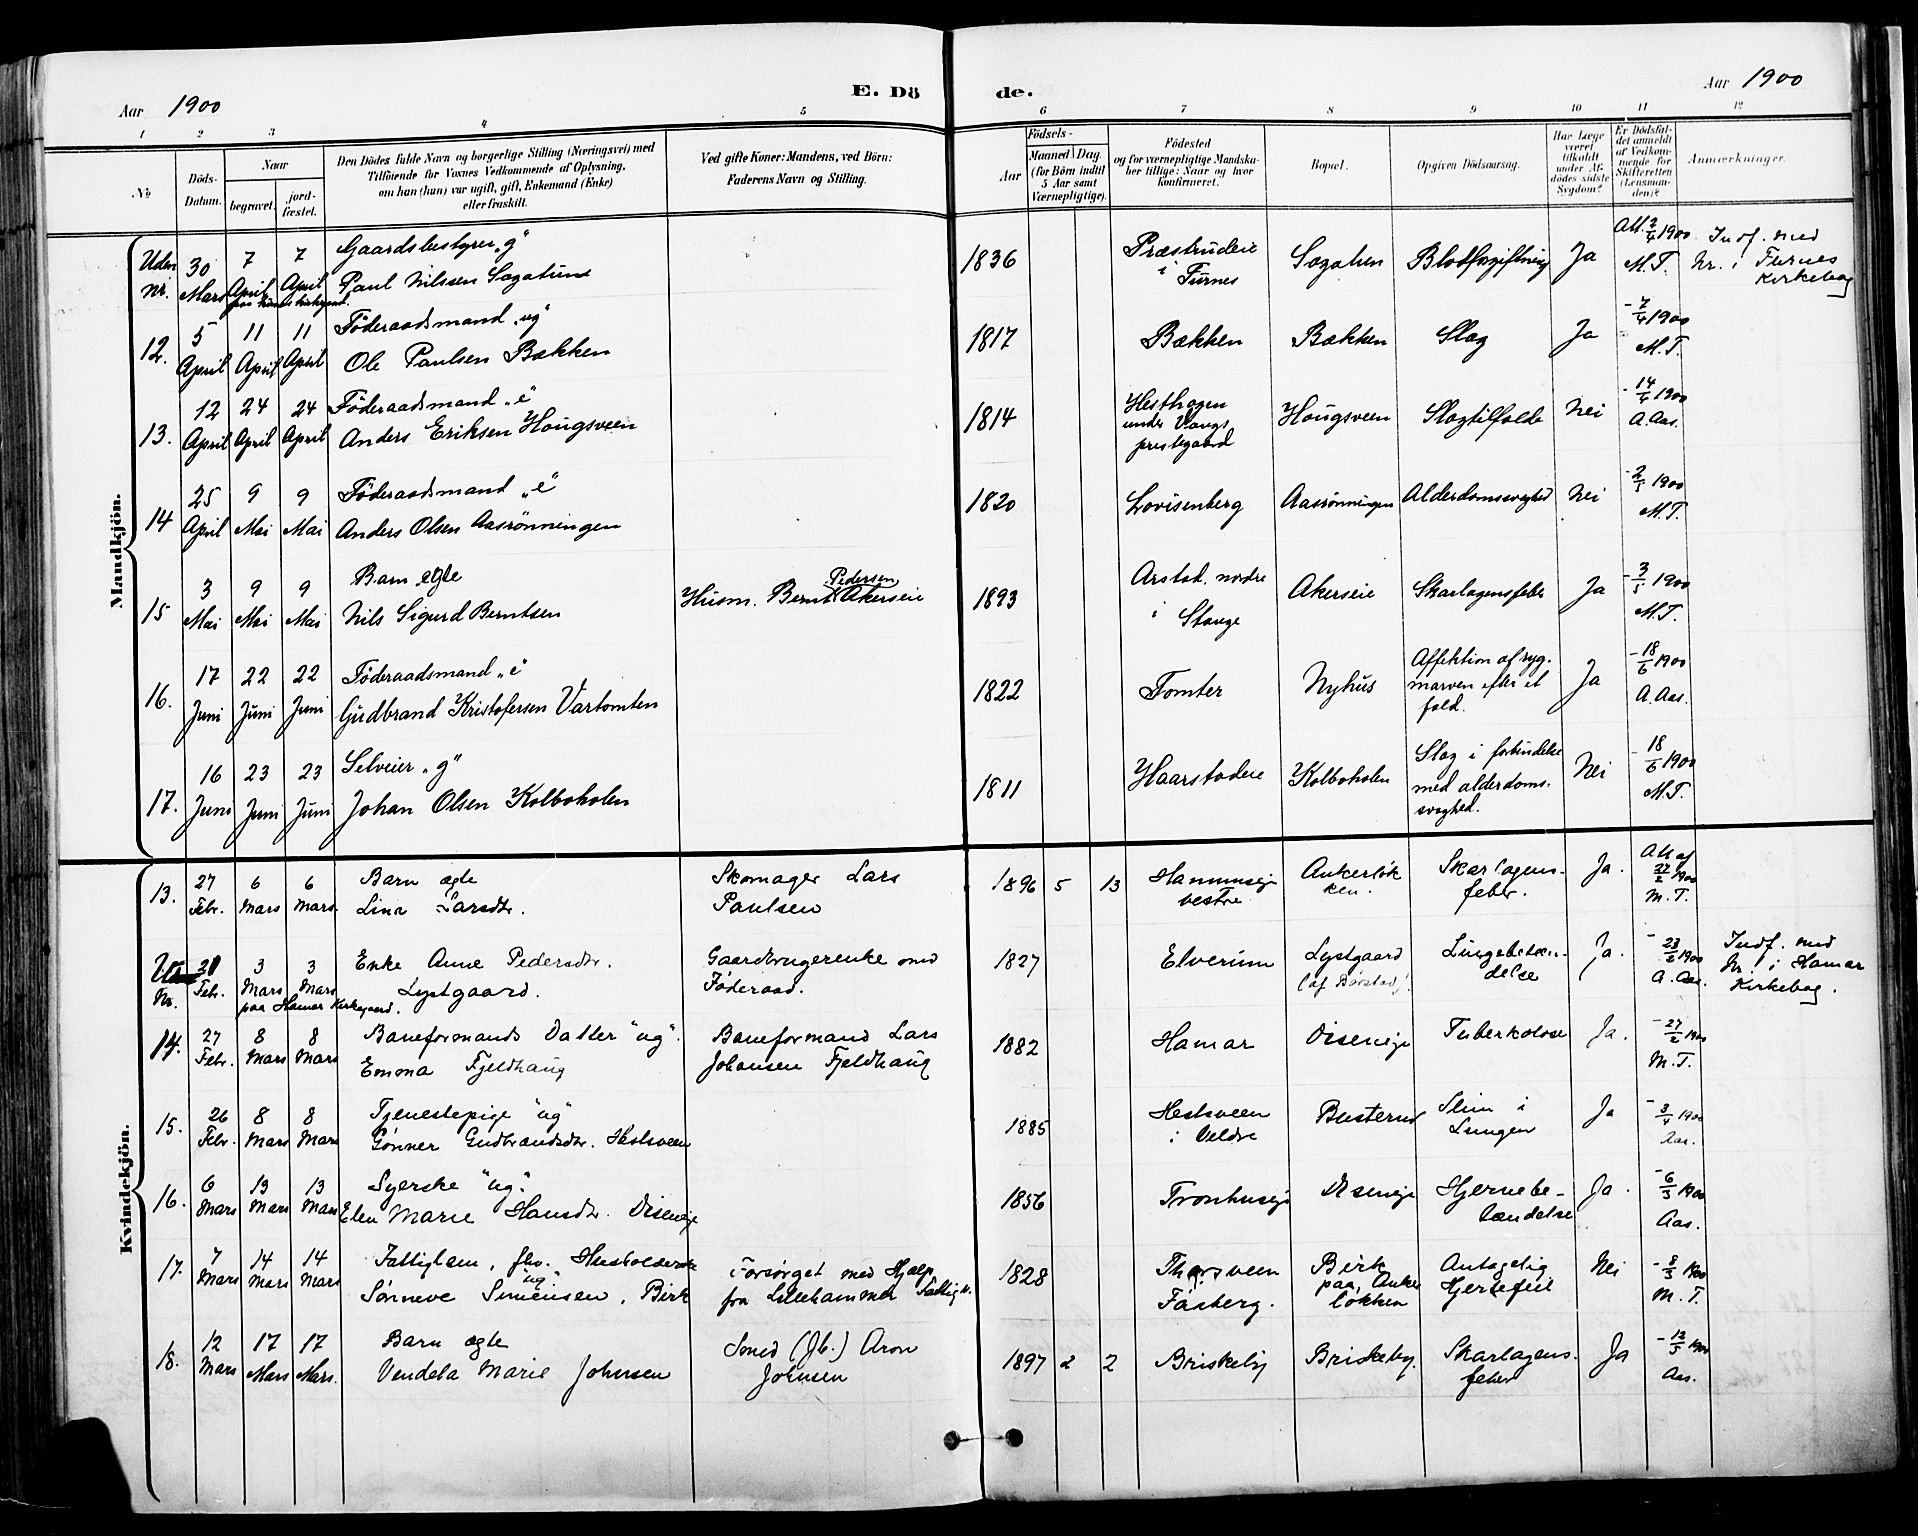 Aar 1900
E. Dö
de.
Aar 1900
1 2 3 4 5 6 7 8 9 10 11 12
No
Döds-Datum.
Naar
begravet.
jord-fæstet.
Den Dödes fulde Navn og borgerlige Stilling (Næringsvei) med
Tilföiende for Voxnes Vedkommende af Oplysning,
om han (hun) var ugift, gift, Enkemand (Enke)
eller fraskilt.
Ved gifte Koner: Mandens, ved Börn:
Faderens Navn og Stilling.
Födsels-
Aar
Maaned
Dag.
(for Börn indtil
5 Aar samt
Værnepligtige).
Födested
og for værnepligtige Mandska-
ber tillige: Naar og hvor
Konfirmeret.
Bopæl.
Opgiven Dödsaarsag.
Har Læge
været
tilkaldt
under Af-
dödes sidste
Sygdom?
Er Dödsfal-
det anmeldt
af Vedkom-
mende for
Skifteretten
(Lensman-
den)?
Anmærkninger.
Mandkjön.
Uden Nr. 30 Mars 7 April 7 April
Gaardsbestyrer "g"
Paul Nilsen Sagatun
1836 Præstrudeie i Furnes Sagatun Blodforgiftning Ja 3/4 1900 M.T.
Indf. med
Nr. i Furnes
Kirkebog
12. 5 April 11 April 11 April
Föderaadsmand "ug"
Ole Paulsen Bækken
1817 Bækken Bækken Slag Ja - 7/4 1900 M.T.
13. 12 April 24 April 24 April
Föderaadsmand "e"
Anders Eriksen Hougsveen
1814 Hesthagen under Vangs prestegaard Hougsveen Slagtilfælde Nei - 14/4 1900 A. Aas.
14 25 April 9 Mai 9 Mai
Föderaadsmand "e"
Anders Olsen Aasrønningen
1820 Lovisenberg Aasrønningen Alderdomssvaghed Nei - 2/5 1900 M.T.
15 3 Mai 9 Mai 9 Mai
Barn egte
Nils Sigurd Berntsen
Husm. Bernt Pedersen Akerseie
1893 Arstad nordre i Stange Akerseie Skarlagensfeber Ja - 3/5 1900 M.T.
16. 17 Juni 22 Juni 22 Juni
Föderaadsmand "e"
Gudbrand Kristofersen Vartomten
1822 Tomter Nyhus Affektion af ryg-
marven efter et
fald. Ja - 18/6 1900 A. Aas.
17. 16 Juni 23 Juni 23 Juni
Selveier "g"
Johan Olsen Kolboholen
1811 Haarstadeie Kolboholen Slag i forbindelse
med alderdoms-
svaghed. Nei - 18/6 1900 M.T.
Kvindekjön.
13. 27 Febr. 6 Mars 6 Mars.
Barn ægte
Lina Larsdtr.
Skomager Lars
Paulsen
1896 5 13 vestre Ankerløk-
ken. Skarlagens-
feber. Ja. 27/2 1900 M.T.
Nr. Febr. 3 Mars 3 Mars
paa Hamar Kirkegaard.
Enke Anne Pedersdtr.
Lystgaard.
Gaardbrugerenke med
Føderaad.
1827 Elverum Lystgaard
(af Børstad). Lungebetæn-
delse Ja. A. Aas.
Indf. med
Nr. i Hamar
Kirkebog.
14. 27 Febr. 8 Mars 8 Mars
Baneformands Datter "ug".
Emma Fjeldhaug
Baneformand Lars
Johansen Fjeldhaug
1882 Hamar Diseneje Tuberkolose Ja. - 27/2 1900 M.T.
15. 26 Febr. 8 Mars 8 Mars
Tjenestepige "ug"
Gønner Gudbrandsdtr. Hestsveen
1885 Hestsveen i Veldre Busterud Slim i
Lungen Ja - 3/4 1900 Aas.
16. 6 Mars 13 Mars 13 Mars
Syerske "ug".
Elen Marie Hansdtr. Diseneje
1856 Tronhuseje Diseneje Hjernebe-
tændelse Ja. - 6/3 1900 Aas.
17. 7 Mars 14 Mars 14 Mars
Fattiglem, fhv. Husholderske
"ug"
Sønneve Simensen, Birk
Forsørget med Hjælp
fra Lillehammer Fattigv.
1828 Thorsveen
Fåberg. Birk
paa Anker
løkken Antagelig
Hjertefeil Nei - 8/3 1900 M.T.
18. 12 Mars 17 Mars 17 Mars.
Barn ægte
Vendela Marie Johnsen
Smed (Jb.) Aron
Johnsen
1897 2 2 Briskeby Briskeby. Skarlagens-
feber Ja - 12/3 1900 Aas.